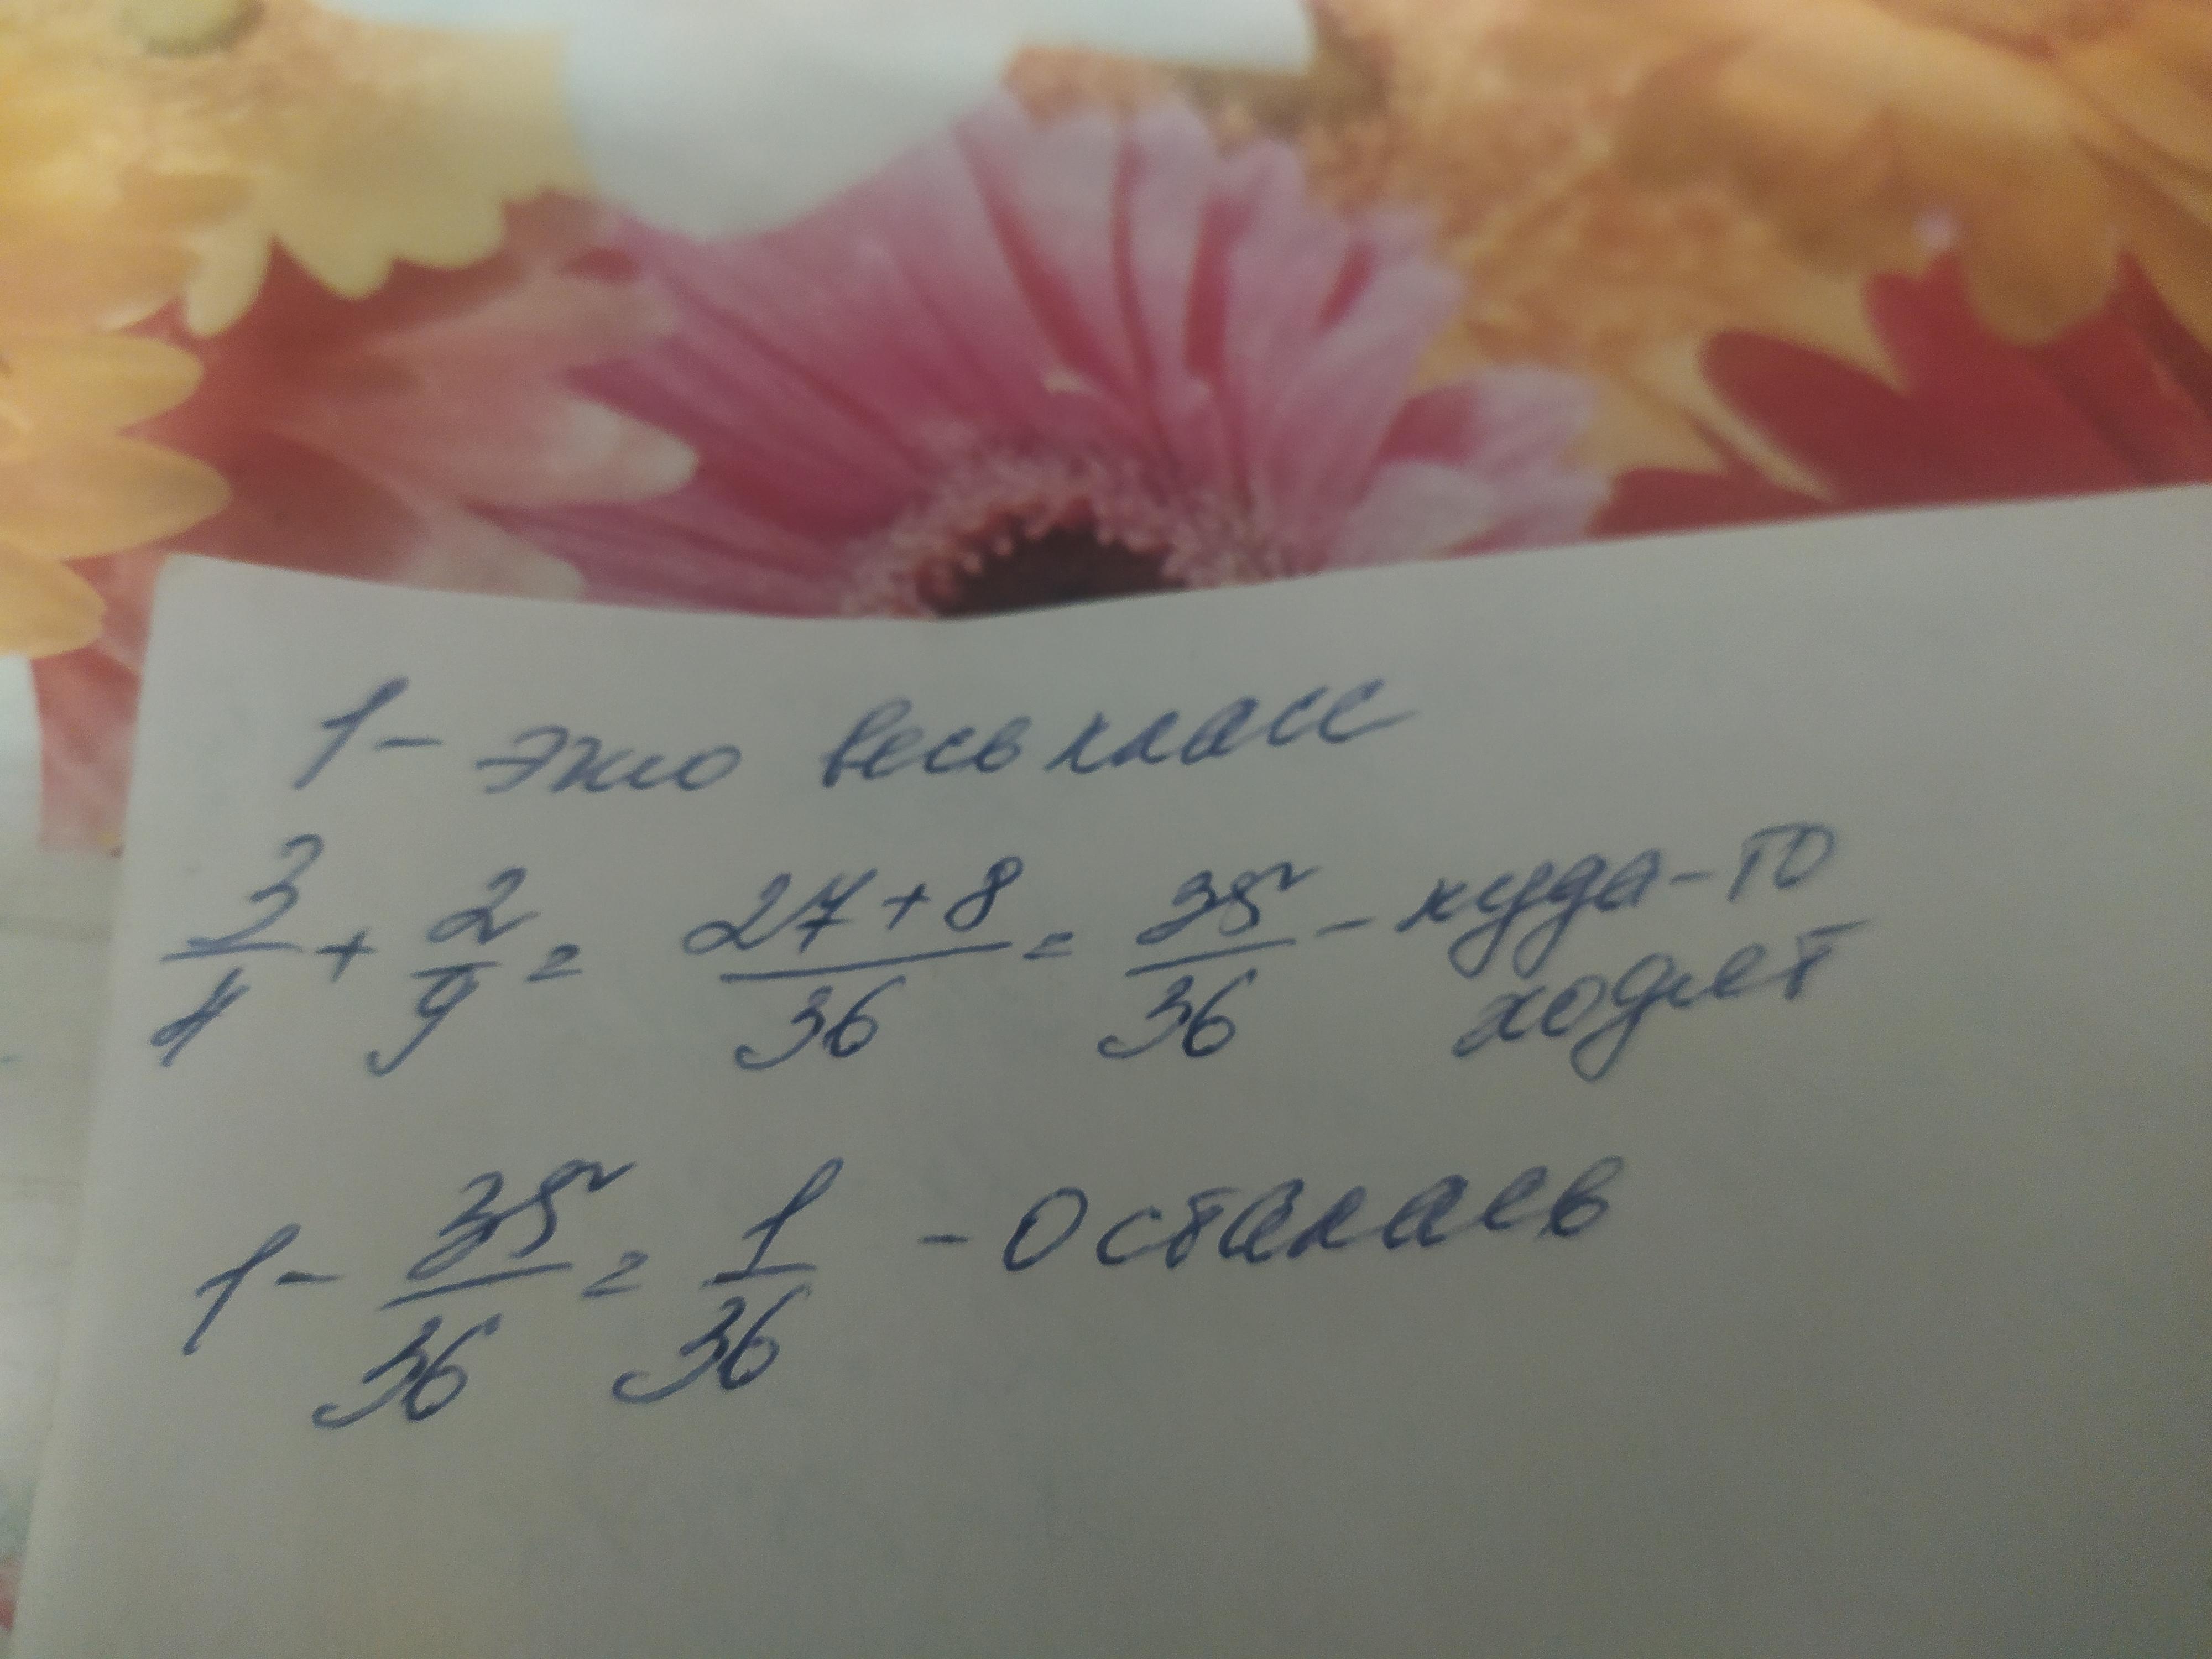 1 - это весь класс
3/4 + 2/9 = 27+8/36 = 35/36 - куда-то
ходят
1 - 35/36 = 1/36 - Осталась